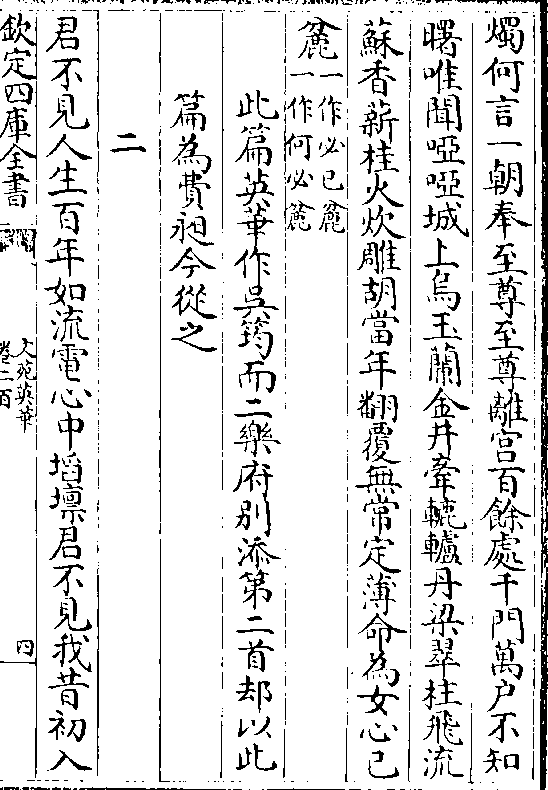 燭何言一朝奉至尊至尊離宫百餘處千門萬户不知
曙唯聞啞啞城上烏玉蘭金井牽轆轤丹梁翠柱飛流
蘇香薪桂火炊雕胡當年翻覆無常定薄命為女心已
麄一作必已麄
一作何必麄
此篇英華作吳筠而二樂府别添第二首却以此
篇為費昶今從之
二
君不見人生百年如流電心中坮壈君不見我昔初入
欽定四庫全書
文苑英華
卷二百
四